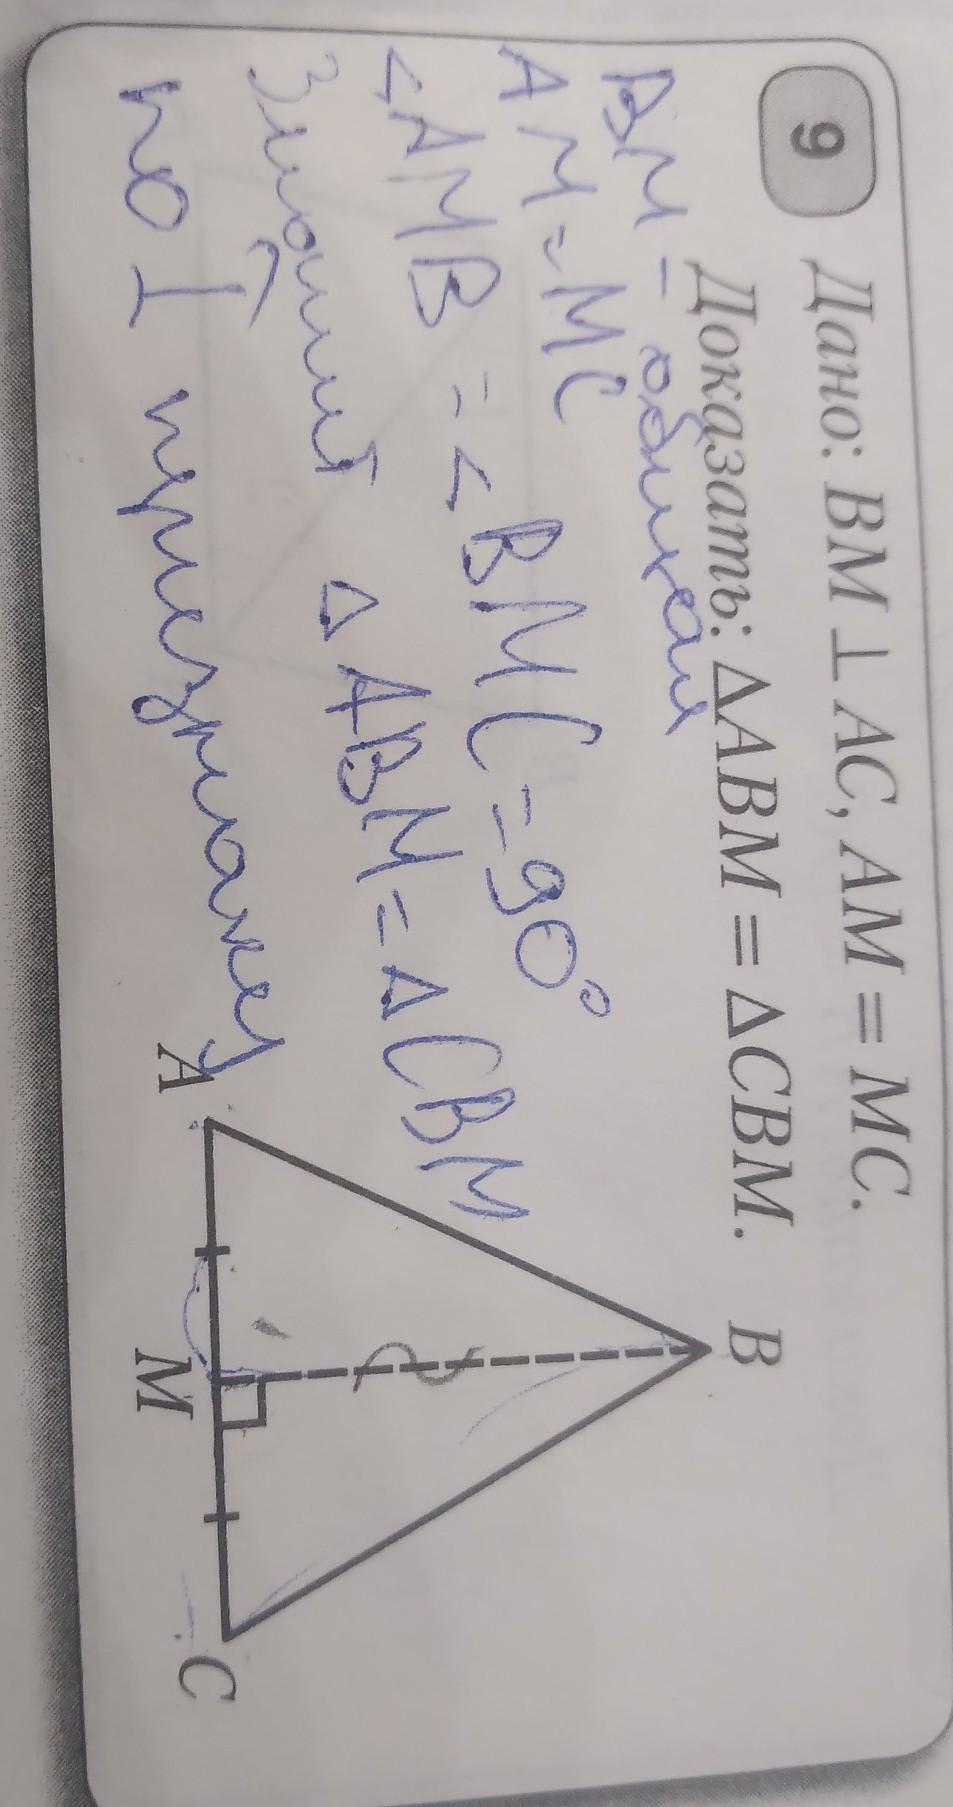 9
Дано: BM ⊥ AC, AM = MC.
Доказать: △ABM = △CBM.
BM - общая
AM = MC
<AMB = <BMC = 90°
△ ABM = △ CBM
по I признаку
B
A
M
C